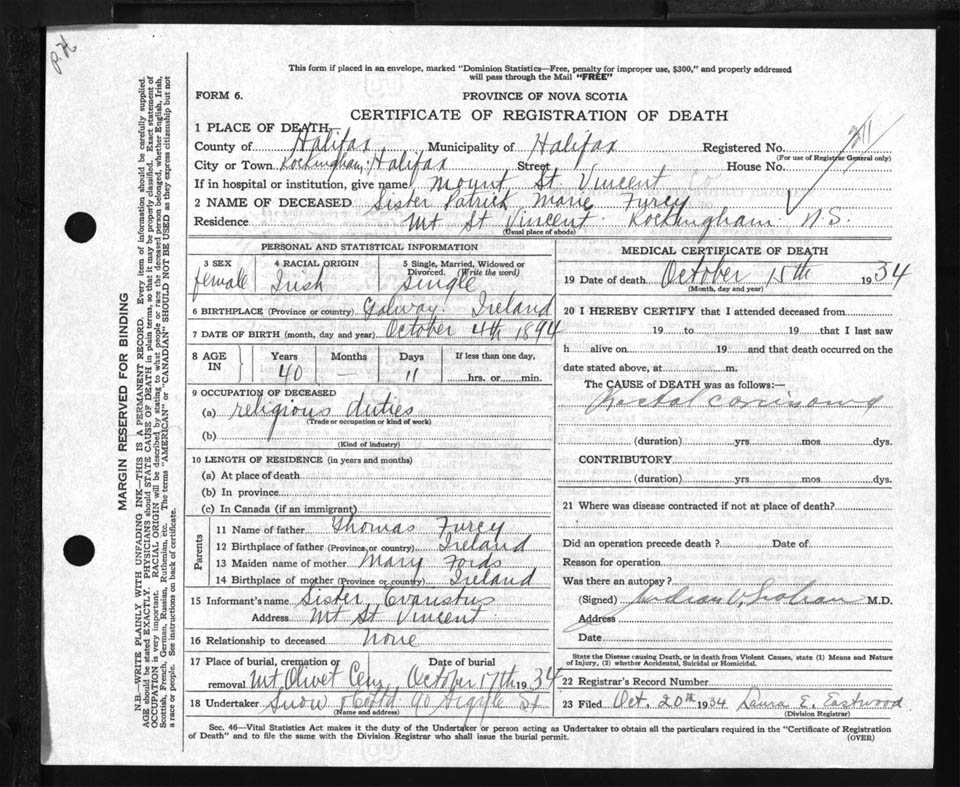 P.H
This form if placed in an envelope, marked "Dominion Statistics—Free, penalty for improper use, $300," and properly addressed
will pass through the Mail "FREE"
FORM 6.
PROVINCE OF NOVA SCOTIA
CERTIFICATE OF REGISTRATION OF DEATH
1 PLACE OF DEATH
County of Halifax Municipality of Halifax Registered No.
(For use of Registrar General only)
City or Town Rockingham; Halifax Street House No.
If in hospital or institution, give name Mount St. Vincent
2 NAME OF DECEASED Sister Patrick Marie Furey
Residence Mt St Vincent Rockingham N.S
(Usual place of abode)
PERSONAL AND STATISTICAL INFORMATION
3 SEX 4 RACIAL ORIGIN 5 Single, Married, Widowed or
Divorced. (Write the word)
female Irish Single
6 BIRTHPLACE (Province or country) Galway Ireland
7 DATE OF BIRTH (month, day and year) October 4th 1894
8 AGE IN Years Months Days If less than one day,
40 — 11 hrs. or min.
9 OCCUPATION OF DECEASED
(a) religious duties
(Trade or occupation or kind of work)
(b)
(Kind of industry)
10 LENGTH OF RESIDENCE (in years and months)
(a) At place of death
(b) In province
(c) In Canada (if an immigrant)
Parents
11 Name of father Thomas Furey
12 Birthplace of father (Province or country) Ireland
13 Maiden name of mother Mary Fords
14 Birthplace of mother (Province or country) Ireland
15 Informant's name Sister Evaristus
Address Mt St Vincent
16 Relationship to deceased None
17 Place of burial, cremation or Date of burial
removal Mt Olivet Cem, October 17th 1934
18 Undertaker Snow 90 Argyle St
(Name and address)
MEDICAL CERTIFICATE OF DEATH
19 Date of death October 15th 1934
(Month, day and year)
20 I HEREBY CERTIFY that I attended deceased from
19 to 19 that I last saw
h alive on 19 and that death occurred on the
date stated above, at m.
The CAUSE of DEATH was as follows:—
Rectal carcinoma
(duration) yrs. mos. dys.
CONTRIBUTORY
(duration) yrs. mos. dys.
21 Where was disease contracted if not at place of death?
Did an operation precede death ? Date of
Reason for operation
Was there an autopsy?
(Signed) M.D.
Address
Date
State the Disease causing Death, or in death from Violent Causes, state (1) Means and Nature
of Injury, (2) whether Accidental, Suicidal or Homicidal.
22 Registrar's Record Number
23 Filed Oct. 20th 1934 Laura E. Eastwood
(Division Registrar)
Sec. 46—Vital Statistics Act makes it the duty of the Undertaker or person acting as Undertaker to obtain all the particulars required in the "Certificate of Registration
of Death" and to file the same with the Division Registrar who shall issue the burial permit. (OVER)
MARGIN RESERVED FOR BINDING
N.B.—WRITE PLAINLY WITH UNFADING INK—THIS IS A PERMANENT RECORD. Every item of information should be carefully supplied.
AGE should be stated EXACTLY. PHYSICIANS should STATE CAUSE OF DEATH in plain terms, so that it may be properly classified. Exact statement of
OCCUPATION is very important. RACIAL ORIGIN will be described by stating to what people or race the deceased person belonged, whether English, Irish,
Scottish, French, German, Russian, Ruthenian, etc. The terms "AMERICAN" or "CANADIAN" SHOULD NOT BE USED as they express citizenship but not
a race or people. See instructions on back of certificate.